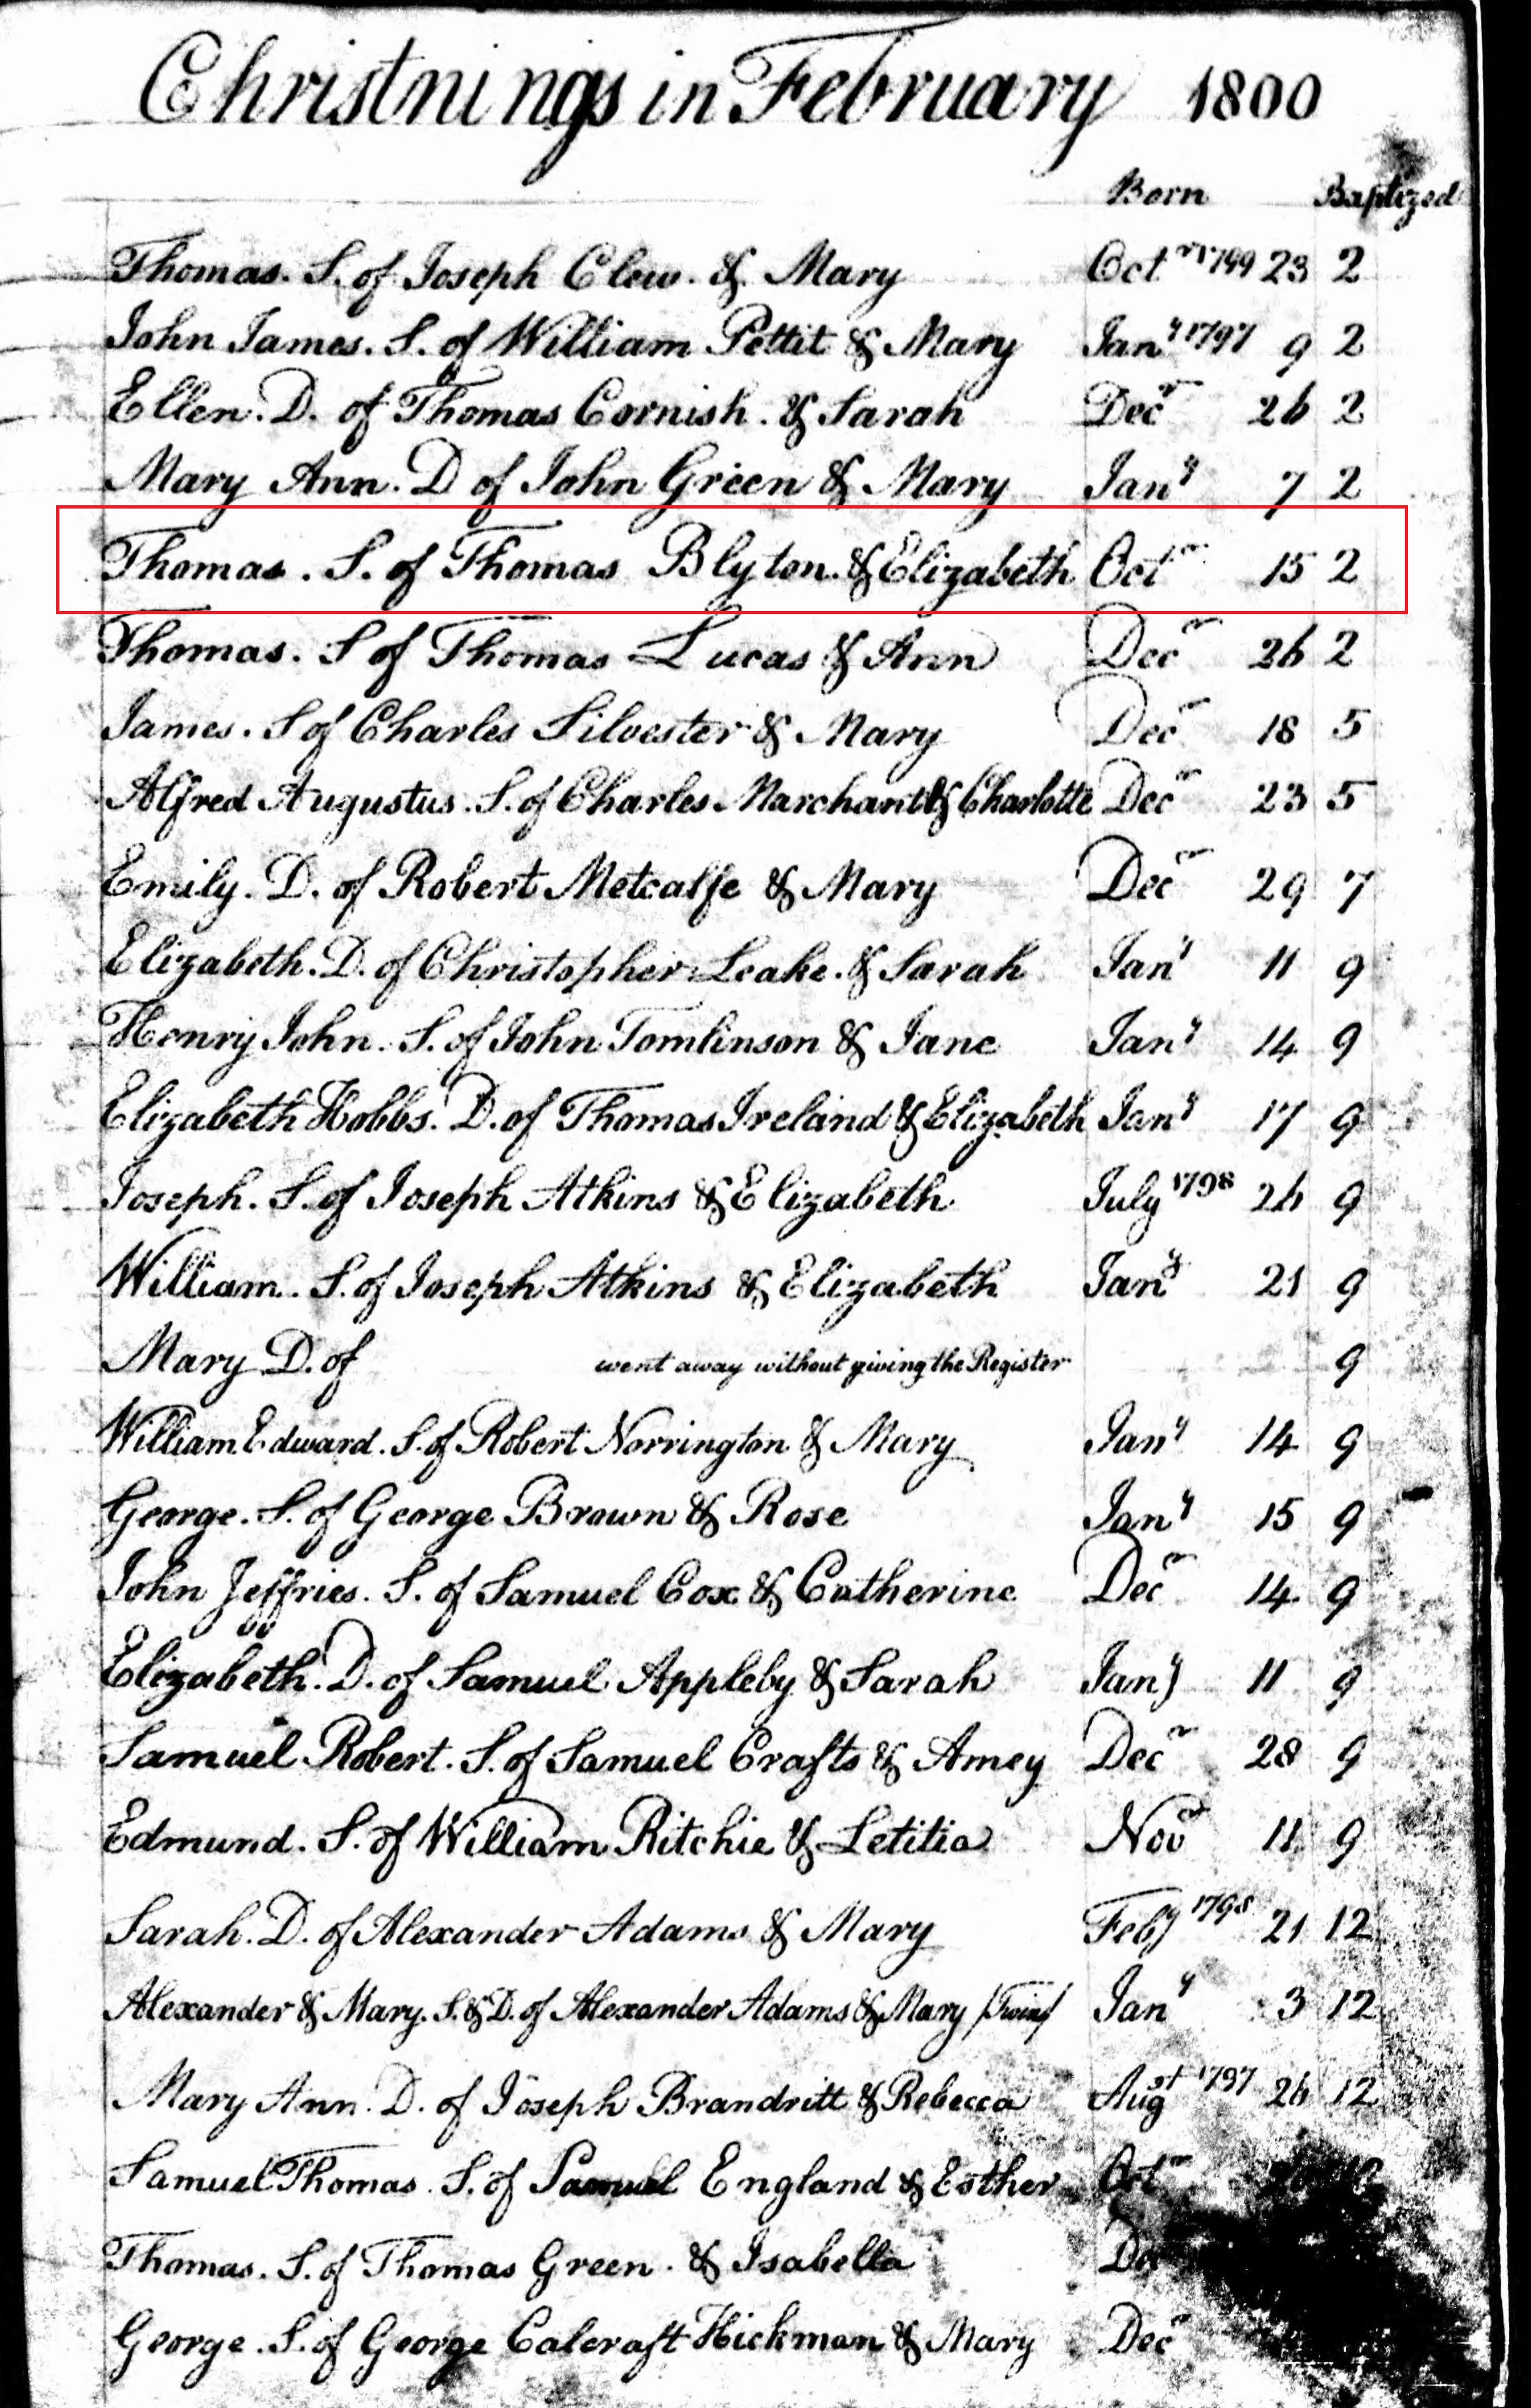 Christnings in February 1800
Born Baptized
Thomas. S. of Joseph Clew. & Mary Oct r 1799 23 2
John James. S. of William Pettit & Mary Jany 1797 9 2
Ellen. D. of Thomas Cornish. & Sarah Decr 26 2
Mary Ann. D of John Green & Mary Jany 7 2
Thomas. S. of Thomas Blyton. & Elizabeth Octr 15 2
Thomas. S of Thomas Lucas & Ann Decr 26 2
James. S of Charles Silvester & Mary Decr 18 5
Alfred Augustus. S. of Charles Marchant & Charlotte Decr 23 5
Emily. D. of Robert Metcalfe & Mary Decr 29 7
Elizabeth. D. of Christopher Leake. & Sarah Jany 11 9
Henry John. S. of John Tomlinson & Jane Jany 14 9
Elizabeth Hobbs. D. of Thomas Ireland & Elizabeth Jany 17 9
Joseph. S. of Joseph Atkins & Elizabeth July 1798 26 9
William. S. of Joseph Atkins & Elizabeth Jany 21 9
Mary D. of went away without giving the Register 9
William Edward. S. of Robert Norrington & Mary Jany 14 9
George. S. of George Brown & Rose Jany 15 9
John Jeffries. S. of Samuel Cox & Catherine Decr 14 9
Elizabeth. D. of Samuel Appleby & Sarah Jany 11 9
Samuel Robert. S. of Samuel Crafts & Amey Decr 28 9
Edmund. S. of William Ritchie & Letitia Novr 11 9
Sarah. D. of Alexander Adams & Mary Feby 1798 21 12
Alexander & Mary. S. & D. of Alexander Adams & Mary /Twins/ Jany 3 12
Mary Ann. D. of Joseph Brandritt & Rebecca Augst 1797 26 12
Samuel Thomas. S. of Samuel England & Esther Octr
Thomas. S. of Thomas Green. & Isabella Dec
George. S. of George Calcraft Hickman & Mary Decr